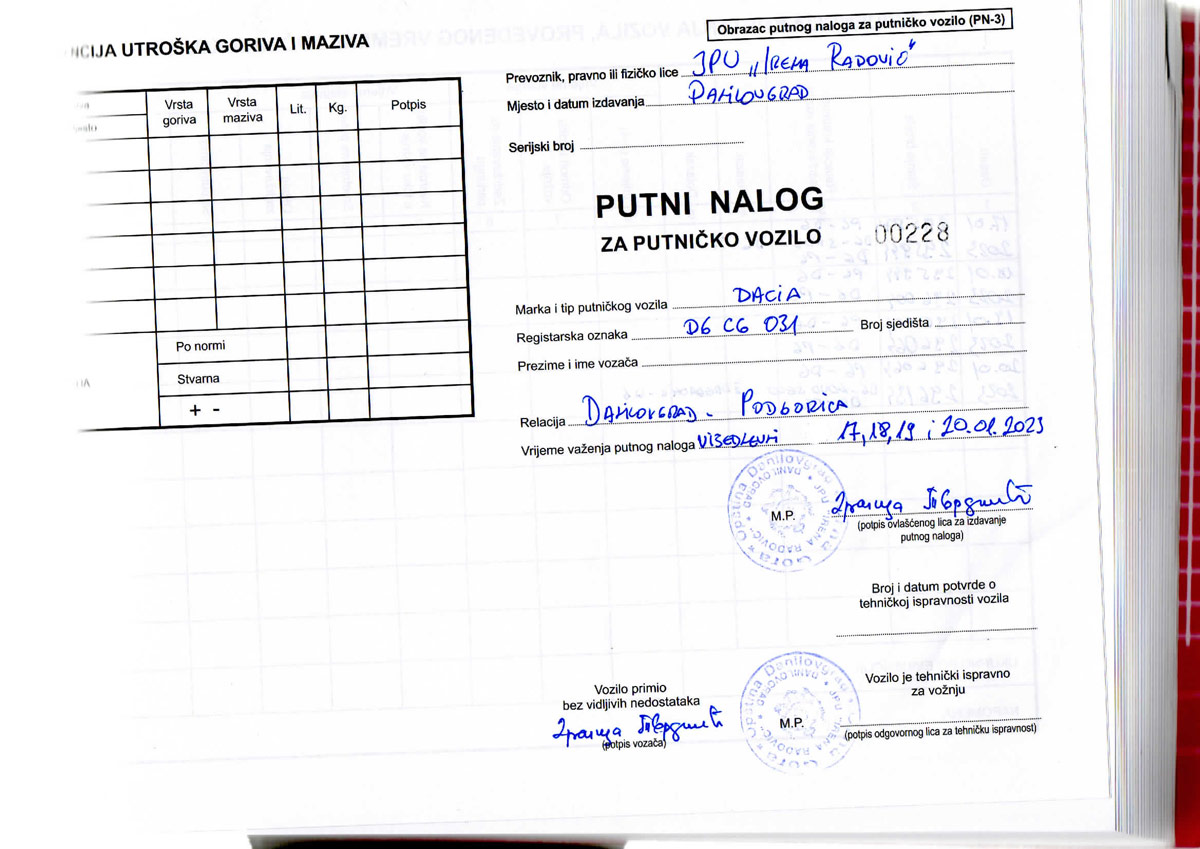 NCIJA UTROŠKA GORIVA I MAZIVA
Vrsta goriva
Vrsta maziva
Lit.
Kg.
Potpis
Po normi
Stvarna
+ -
Obrazac putnog naloga za putničko vozilo (PN-3)
Prevoznik, pravno ili fizičko lice JPU „Irena Radović"
Mjesto i datum izdavanja DANILOVGRAD
Serijski broj
PUTNI NALOG
ZA PUTNIČKO VOZILO 00228
Marka i tip putničkog vozila DACIA
Registarska oznaka DG CG 031 Broj sjedišta
Prezime i ime vozača
Relacija DANILOVGRAD - PODGORICA
Vrijeme važenja putnog naloga VIŠEDNEVNI 17,18,19 i 20.01.2023
M.P.
(potpis ovlašćenog lica za izdavanje
putnog naloga)
Broj i datum potvrde o
tehničkoj ispravnosti vozila
Vozilo primio
bez vidljivih nedostataka
(potpis vozača)
M.P.
Vozilo je tehnički ispravno
za vožnju
(potpis odgovornog lica za tehničku ispravnost)